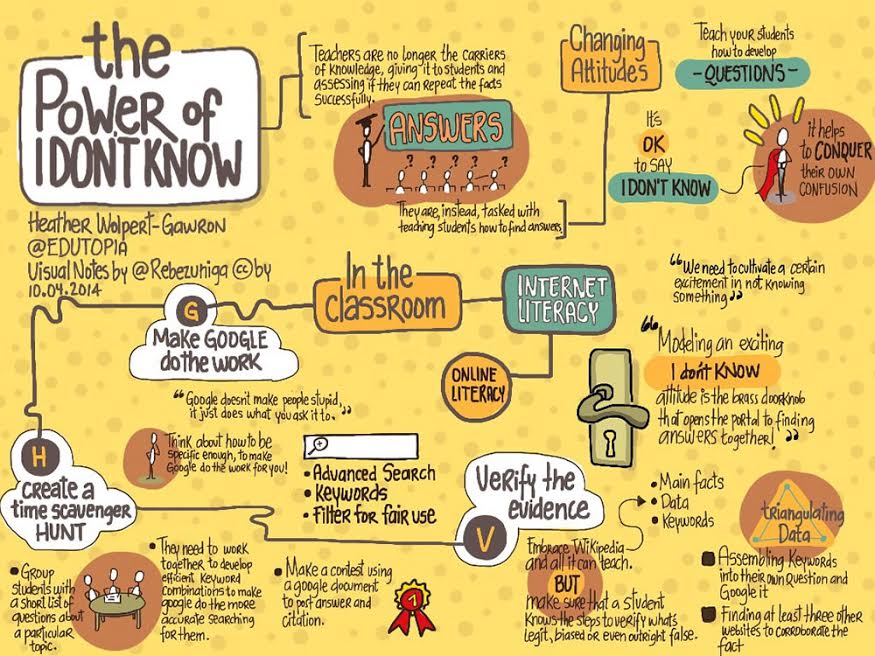 the
Power of
I DON'T KNOW
Heather Wolpert-Gawron
@EDUTOPIA
Visual Notes by @Rebezuniga cc by
10.04.2014
Teachers are no longer the carriers
of knowledge, giving it to students and
assessing if they can repeat the facts
successfully.
ANSWERS
? ? ? ? ?
They are, instead, tasked with
teaching students how to find answers
Changing
Attitudes
Teach your students
how to develop
-QUESTIONS-
It's
OK
to SAY
I DON'T KNOW
it helps
to CONQUER
their own
CONFUSION
In the
classroom
INTERNET
LITERACY
ONLINE
LITERACY
"We need to cultivate a certain
excitement in not knowing
something"
"Modeling an exciting
I don't KNOW
attitude is the brass doorknob
that opens the portal to finding
answers together!"
G
Make GOOGLE
do the WORK
"Google doesn't make people stupid,
it just does what you ask it to."
Think about how to be
specific enough, to make
Google do the work for you!
• Advanced Search
• Keywords
• Filter for fair use
H
Create a
time scavenger
HUNT
• Group
students with
a short list of
questions about
a particular
topic.
• They need to work
together to develop
efficient keyword
combinations to make
google do the more
accurate searching
for them.
• Make a contest using
a google document
to port answer and
citation.
1
Verify the
evidence
V
Embrace Wikipedia
and all it can teach.
BUT
make sure that a student
knows the steps to verify whats
legit, biased or even outright false.
• Main facts
• Data
• Keywords
triangulating
Data
Assembling Keywords
into their own Question and
Google it
Finding at least three other
websites to corroborate the
fact